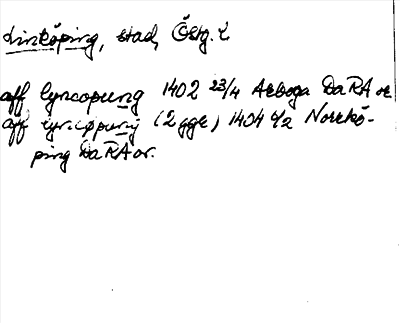 Linköping, stad, Östg. l
aff lyncopung 1402 23/4 Arboga DaRA or
aff lyncøppung (2 ggr) 1404 6/2 Norrkö-
ping DaRA or.